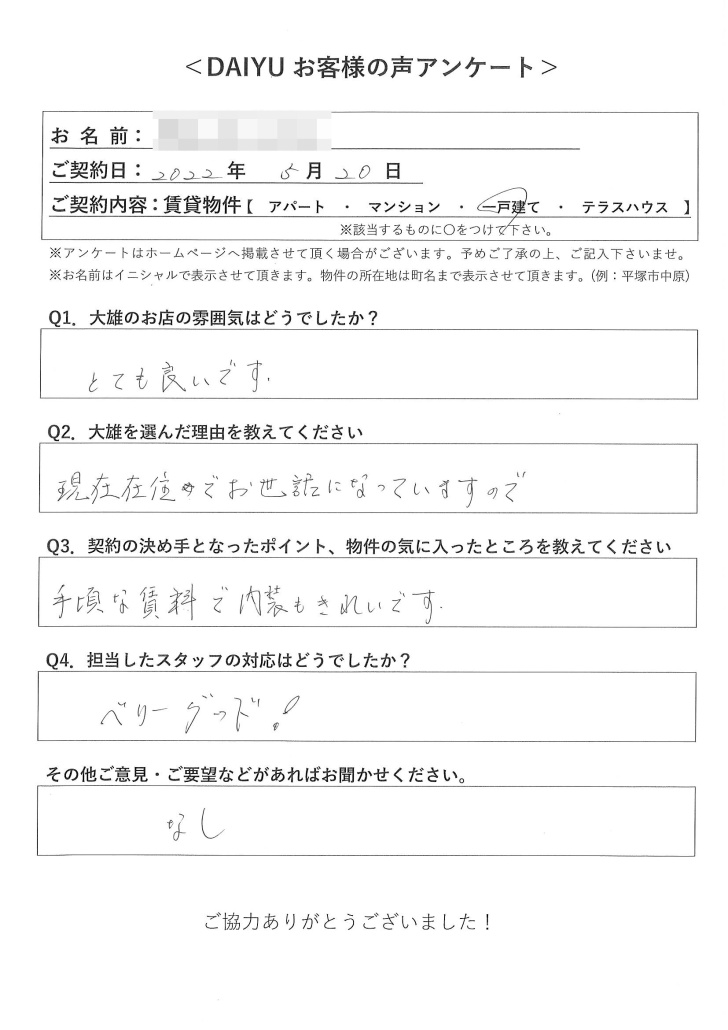 ＜DAIYU お客様の声アンケート＞
お 名 前：
ご契約日：2022年 5月20日
ご契約内容：賃貸物件【 アパート ・ マンション ・ 一戸建て ・ テラスハウス 】
※該当するものに〇をつけて下さい。
※アンケートはホームページへ掲載させて頂く場合がございます。予めご了承の上、ご記入下さいませ。
※お名前はイニシャルで表示させて頂きます。物件の所在地は町名まで表示させて頂きます。（例：平塚市中原）
Q1．大雄のお店の雰囲気はどうでしたか？
とても良いです.
Q2．大雄を選んだ理由を教えてください
現在在住めでお世話になっていますので
Q3．契約の決め手となったポイント、物件の気に入ったところを教えてください
手頃な賃料で内装もきれいです.
Q4．担当したスタッフの対応はどうでしたか？
ベリーグッド！
その他ご意見・ご要望などがあればお聞かせください。
なし
ご協力ありがとうございました！